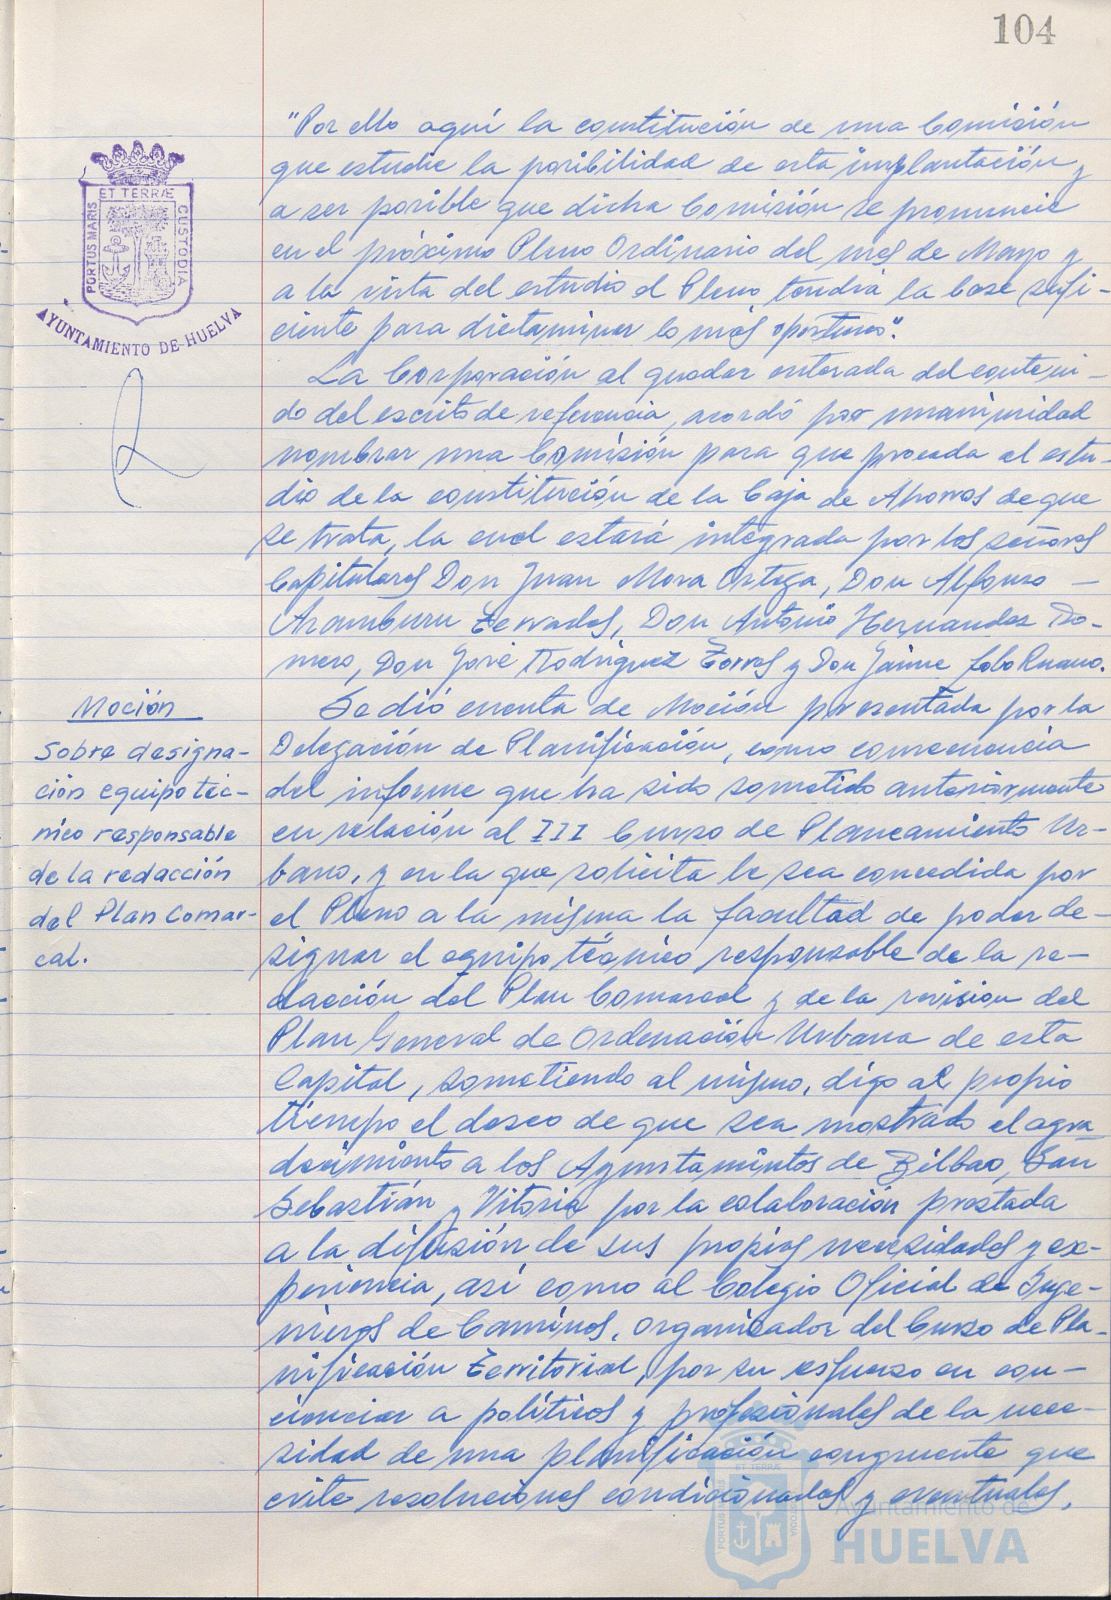 104
"Por ello aquí la constitución de una Comisión
que estudie la posibilidad de esta implantación y
a ser posible que dicha Comisión se pronuncie
en el próximo Pleno Ordinario del mes de Mayo y
a la vista del estudio el Pleno tendrá la base sufi-
ciente para dictaminar lo más oportuno".
La Corporación al quedar enterada del conteni-
do del escrito de referencia, acordó por unanimidad
nombrar una Comisión para que proceda al estu-
dio de la constitución de la Caja de Ahorros de que
se trata, la cual estará integrada por los señores
Capitulares Don Juan Mora Ortega, Don Alfonso
Aramburu Terrades, Don Antonio Hernandez Ro-
mero, Don José Rodriguez Torres y Don Jaime Lobo Ruano.
Moción
sobre designa-
ción equipo téc-
nico responsable
de la redacción
del Plan Comar-
cal.
Se dió cuenta de Moción presentada por la
Delegación de Planificación, como consecuencia
del informe que ha sido sometido anteriormente
en relación al III Curso de Planeamiento Ur-
bano, y en la que solicita le sea concedida por
el Pleno a la misma la facultad de poder de-
signar el equipo técnico responsable de la re-
dacción del Plan Comarcal y de la revision del
Plan General de Ordenación Urbana de esta
Capital, sometiendo al mismo, digo al propio
tiempo el deseo de que sea mostrado el agra
decimiento a los Ayuntamientos de Bilbao, San
Sebastián y Vitoria por la colaboración prestada
a la difusión de sus propias necesidades y ex-
periencia, así como al Colegio Oficial de Inge-
nieros de Caminos, organizador del Curso de Pla-
nificación Territorial, por su esfuerzo en con-
cienciar a políticos y profesionales de la nece-
sidad de una planificación congruente que
evite resoluciones condicionadas y eventuales,
ET TERRÆ
PORTUS MARIS
CUSTODIA
AYUNTAMIENTO DE HUELVA
Ayuntamiento de
HUELVA